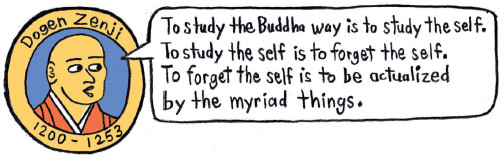 Dogen Zenji
1200 - 1253
To study the Buddha way is to study the self.
To study the self is to forget the self.
To forget the self is to be actualized
by the myriad things.